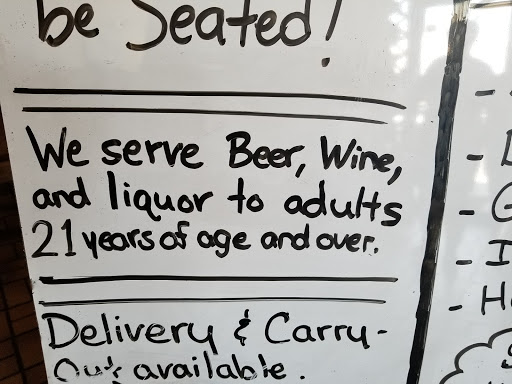 be Seated!
We serve Beer, Wine,
and liquor to adults
21 years of age and over.
Delivery & Carry-
Out available.